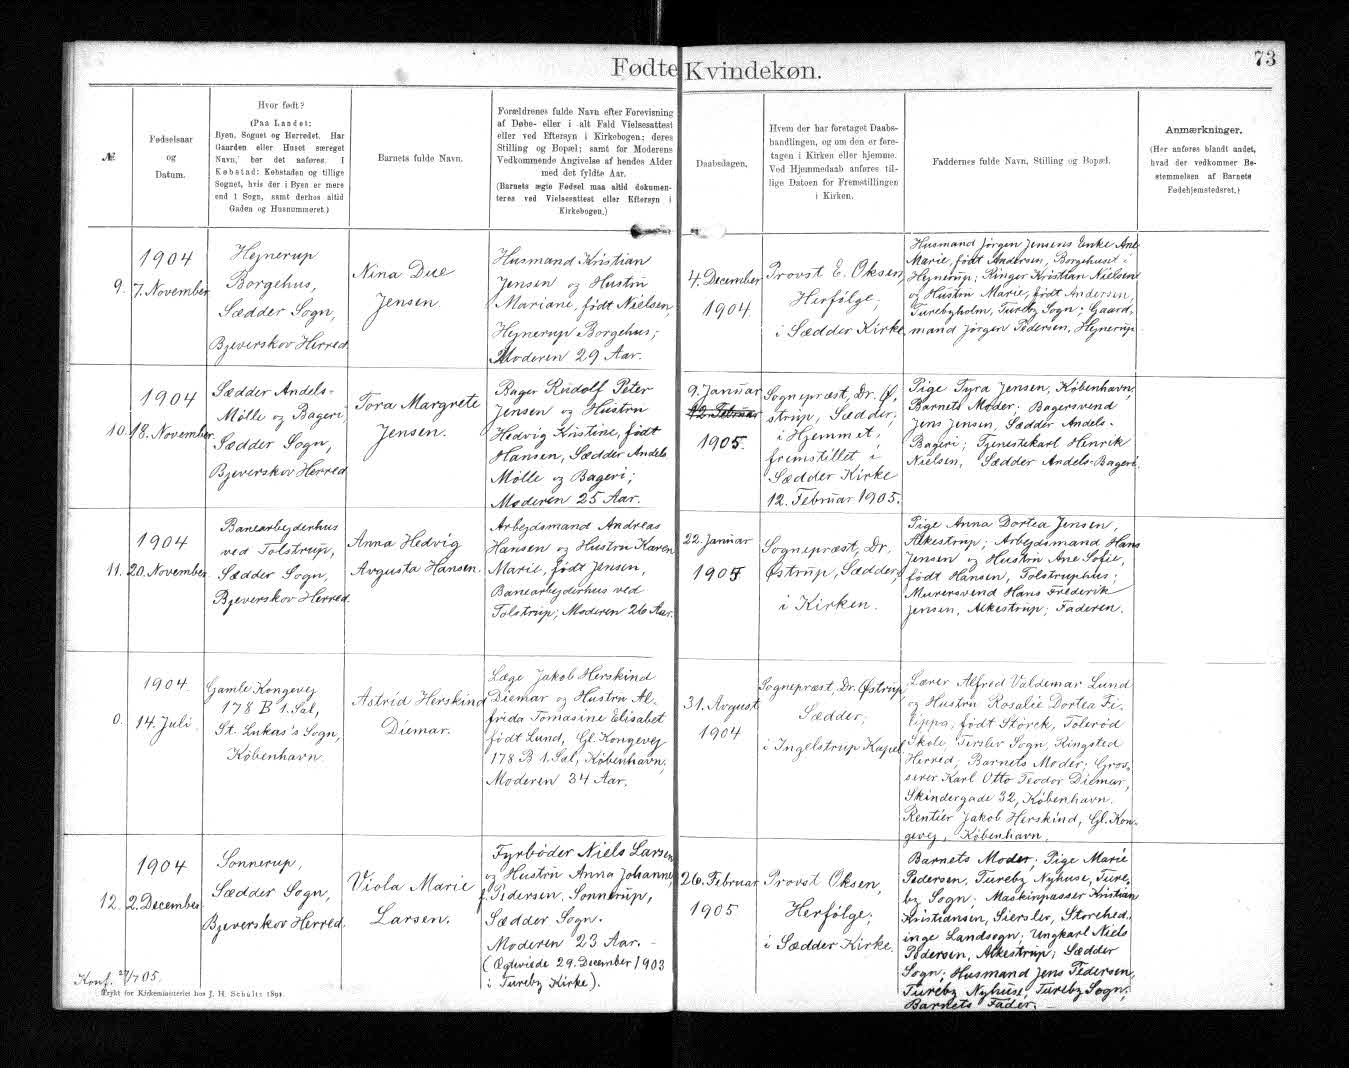 Fødte Kvindekøn.
73
№
Fødselsaar
og
Datum.
Hvor født?
(Paa Landet:
Byen, Sognet og Herredet. Har
Gaarden eller Huset særeget
Navn, bør det anføres. I
Købstad: Købstaden og tillige
Sognet, hvis der i Byen er mere
end 1 Sogn, samt derhos altid
Gaden og Husnummeret.)
Barnets fulde Navn.
Forældrenes fulde Navn efter Forevisning
af Døbe- eller i alt Fald Vielsesattest
eller ved Eftersyn i Kirkebogen; deres
Stilling og Bopæl; samt for Moderens
Vedkommende Angivelse af hendes Alder
med det fyldte Aar.
(Barnets ægte Fødsel maa altid dokumen-
teres ved Vielsesattest eller Eftersyn i
Kirkebogen.)
Daabsdagen.
Hvem der har foretaget Daabs-
handlingen, og om den er fore-
tagen i Kirken eller hjemme.
Ved Hjemmedaab anføres til-
lige Datoen for Fremstillingen
i Kirken.
Faddernes fulde Navn, Stilling og Bopæl.
Anmærkninger.
(Her anføres blandt andet,
hvad der vedkommer Be-
stemmelsen af Barnets
Fødehjemstedsret.)
9.
1904
7. November
Hejnerup
Borgehus,
Sædder Sogn,
Bjeverskov Herred.
Nina Due
Jensen.
Husmand Kristian
Jensen og Hustru
Mariane, født Nielsen
Hejnerup Borgehus;
Moderen 29 Aar.
4. December
1904
Provst E. Oksen,
Herfølge;
i Sædder Kirke
Husmand Jørgen Jensens Enke Ane
Marie, født Andersen, Borgehuset i
Hejnerup; Ringer Kristian Nielsen
og Hustru Marie, født Andersen,
Turebyholm, Tureby Sogn; Gaard-
mand Jørgen Pedersen, Hejnerup.
10.
1904
18. November
Sædder Andels-
Mølle og Bageri,
Sædder Sogn,
Bjeverskov Herred
Tora Margrete
Jensen.
Bager Rudolf Peter
Jensen og Hustru
Hedvig Kristine, født
Hansen, Sædder Andels
Mølle og Bageri;
Moderen 25 Aar.
9. Januar
12. Februar
1905.
Sognepræst, Dr. Ø-
strup, Sædder;
i Hjemmet,
fremstillet i
Sædder Kirke
12. Februar 1905.
Pige Tyra Jensen, København,
Barnets Moder; Bagersvend
Jens Jensen, Sædder Andels-
Bageri; Tjenestekarl Henrik
Nielsen, Sædder Andels-Bageri.
11.
1904
20. November
Banearbejderhus
ved Tolstrup,
Sædder Sogn,
Bjeverskov Herred.
Anna Hedvig
Avgusta Hansen.
Arbejdsmand Andreas
Hansen og Hustru Karen
Marie, født Jensen,
Banearbejderhus ved
Tolstrup; Moderen 26 Aar.
22. Januar
1905
Sognepræst, Dr.
Østrup, Sædder;
i Kirken.
Pige Anna Dortea Jensen,
Alkestrup; Arbejdsmand Hans
Jensen og Hustru Ane Sofie,
født Hansen, Tolstruphus;
Murersvend Hans Frederik
Jensen, Alkestrup; Faderen.
0.
1904
14. Juli.
Gamle Kongevej
178 B 1. Sal,
St. Lukas's Sogn,
København.
Astrid Herskind
Diemar.
Læge Jakob Herskind
Diemar og Hustru Al-
frida Tomasine Elisabet
født Lund, Gl. Kongevej
178 B 1. Sal, København;
Moderen 34 Aar.
31. Avgust
1904
Sognepræst, Dr. Østrup
Sædder;
i Ingelstrup Kapel
Lærer Alfred Valdemar Lund
og Hustru Rosalie Dortea Fi-
lippa, født Størck, Tolerød
Skole, Terslev Sogn, Ringsted
Herred; Barnets Moder; Gros-
serer Karl Otto Teodor Diemar,
Skindergade 32, København.
Rentier Jakob Herskind, Gl. Kon-
gevej, København.
12.
1904
2. December
Sonnerup,
Sædder Sogn,
Bjeverskov Herred.
Viola Marie
Larsen.
Fyrbøder Niels Larsen
og Hustru Anna Johanne,
f. Pedersen, Sonnerup,
Sædder Sogn.
Moderen 23 Aar. -
(Ægteviede 29. December 1903
i Tureby Kirke).
26. Februar
1905
Provst Oksen,
Herfølge;
i Sædder Kirke.
Barnets Moder; Pige Marie
Pedersen, Tureby Nyhuse, Ture-
by Sogn; Maskinpasser Kristian
Kristiansen, Sierslev, Storehed-
inge Landsogn; Ungkarl Niels
Pedersen, Alkestrup; Sædder
Sogn; Husmand Jens Pedersen,
Tureby Nyhuse, Tureby Sogn,
Barnets Fader.
Konf. 27/7 05.
Trykt for Kirkeministeriet hos J. H. Schultz 1891.